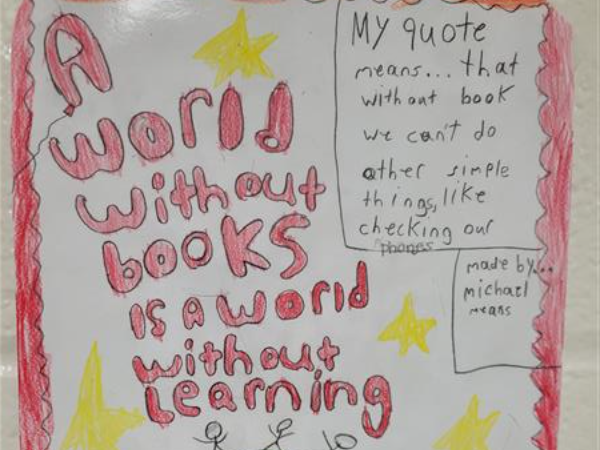 A
World
without
books
is a world
without
Learning
My quote
means... that
without book
we can't do
other simple
things, like
checking our
phones
made by...
michael
means